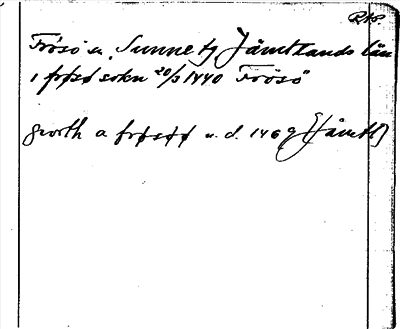 RAP.
Frösö sn, Sunne tg Jämtlands län
i frøsø sokn 20/3 1440 Frösö
gwrth a frøsøø u. d. 1469 (Jämtl)